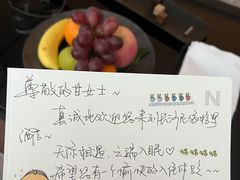 尊敬的甘女士~
真诚地欢迎您来到长沙民信希尔
酒店~
天际相遇,云端入眠♡
希望您有一个愉快的入住体验~~
N